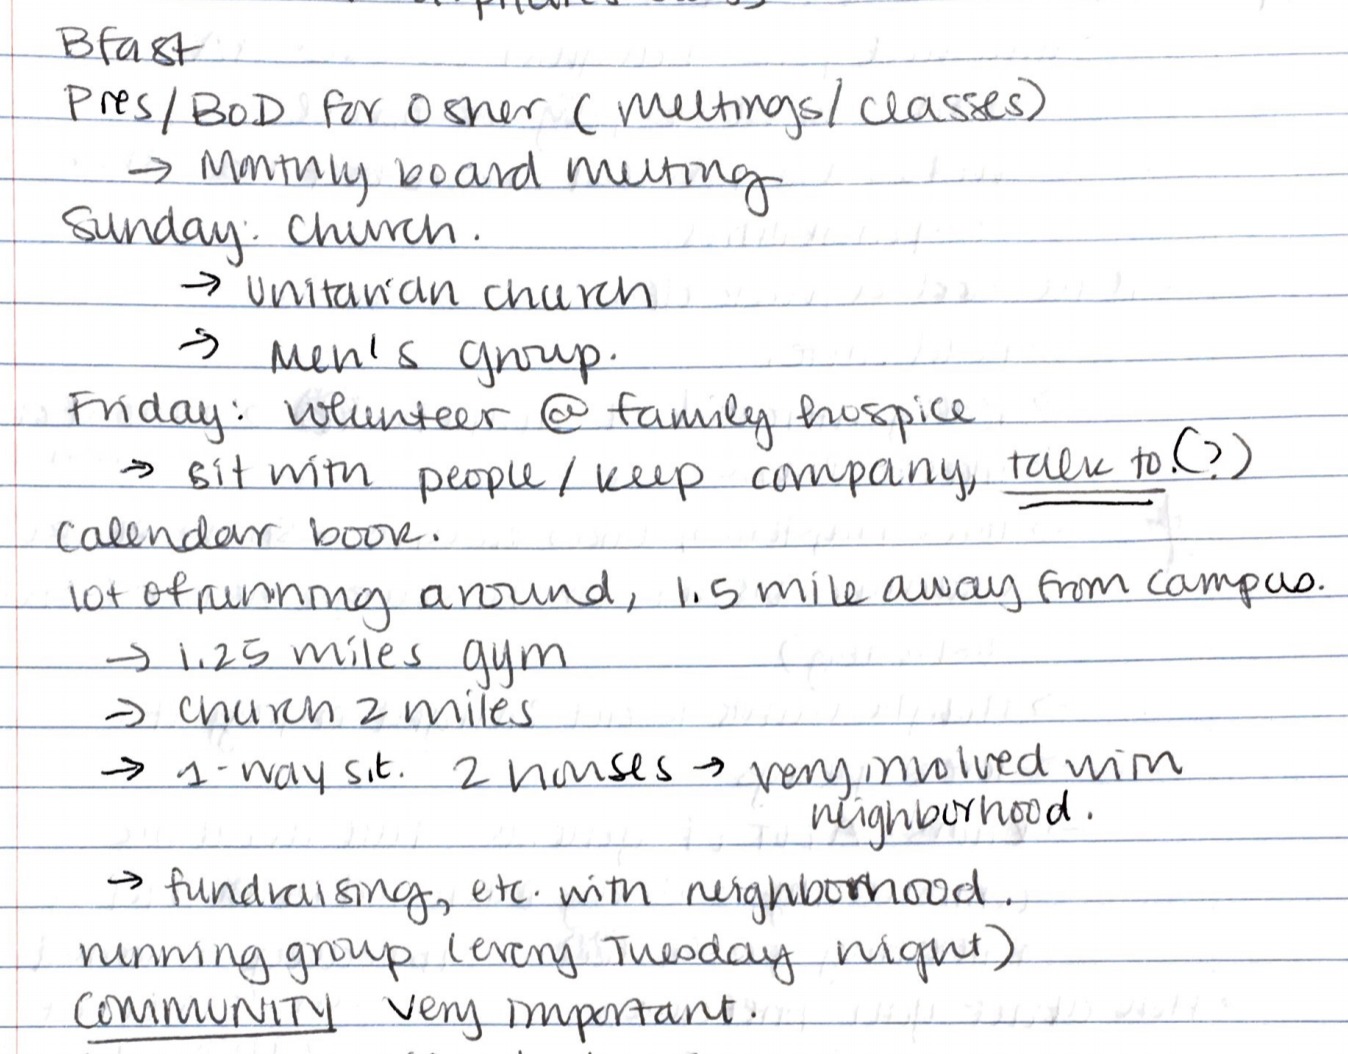 Bfast
Pres/BoD for Osher (meetings/classes)
→ Monthly board meeting
Sunday: Church.
→ Unitarian church
→ Men's group.
Friday: volunteer @ family hospice
→ sit with people/keep company, talk to.(?)
Calendar book.
lot of running around, 1.5 mile away from campus.
→ 1.25 miles gym
→ church 2 miles
→ 1-way st. 2 houses → very involved with
neighborhood.
→ fundraising, etc. with neighborhood.
running group (every Tuesday night)
COMMUNITY very important.